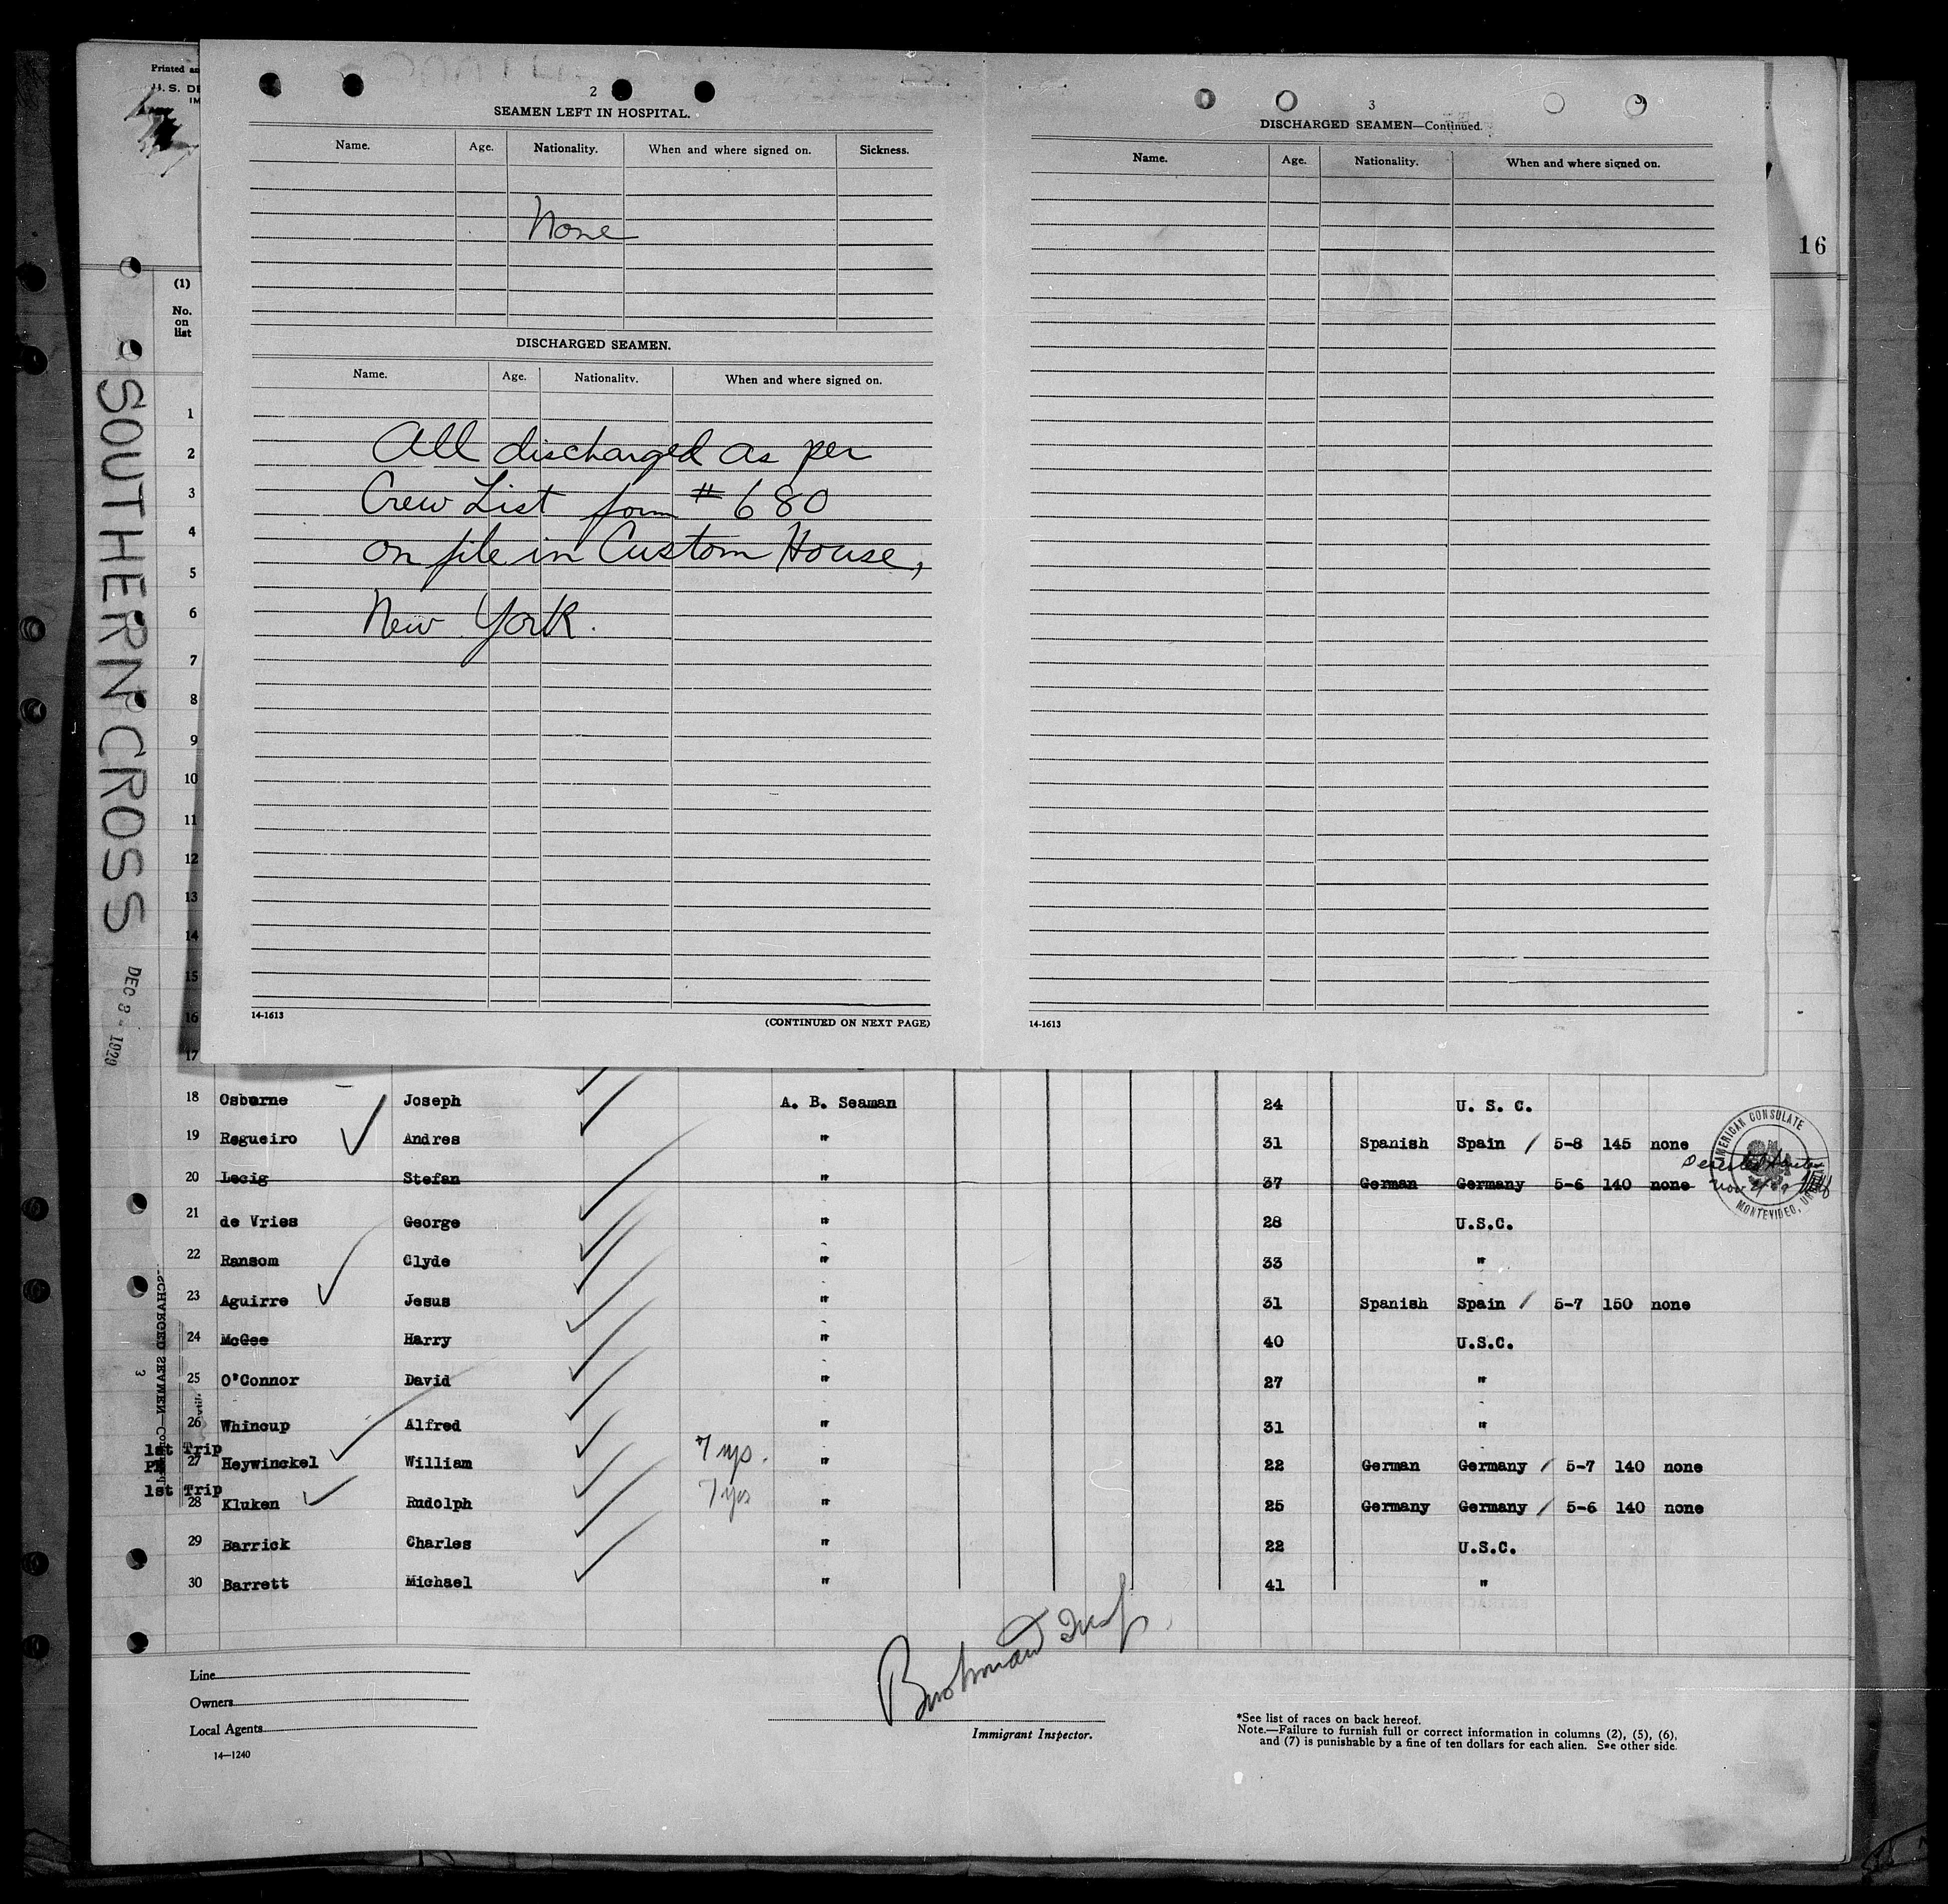 Printed
U. S. DE
IM
2
SEAMEN LEFT IN HOSPITAL.
Name. Age. Nationality. When and where signed on. Sickness.
None
DISCHARGED SEAMEN.
Name. Age. Nationality. When and where signed on.
All discharged as per
Crew List form # 680
on file in Custom House,
New York.
14-1613 (CONTINUED ON NEXT PAGE)
3
DISCHARGED SEAMEN—Continued.
Name. Age. Nationality. When and where signed on.
14-1613
16
(1)
No.
on
list
1
2
3
4
5
6
7
8
9
10
11
12
13
14
15
16
17
SOUTHERN CROSS
DEC 8 - 1929
18 Osborne Joseph A. B. Seaman 24 U. S. C.
19 Regueiro Andres " 31 Spanish Spain 5-8 145 none
20 Lecig Stefan " 37 German Germany 5-6 140 none
21 de Vries George " 28 U.S.C.
22 Ransom Clyde " 33 "
23 Aguirre Jesus " 31 Spanish Spain 5-7 150 none
24 McGee Harry " 40 U.S.C.
25 O'Connor David " 27 "
26 Whincup Alfred " 31 "
1st Trip
27 Heywinckel William 7 yrs. " 22 German Germany 5-7 140 none
1st Trip
28 Kluken Rudolph 7 yrs " 25 Germany Germany 5-6 140 none
29 Barrick Charles " 22 U.S.C.
30 Barrett Michael " 41 "
AMERICAN CONSULATE
MONTEVIDEO,
DISCHARGED SEAMEN—Continued
3
Line
Owners
Local Agents
14—1240
Immigrant Inspector.
*See list of races on back hereof.
Note.—Failure to furnish full or correct information in columns (2), (5), (6),
and (7) is punishable by a fine of ten dollars for each alien. See other side.